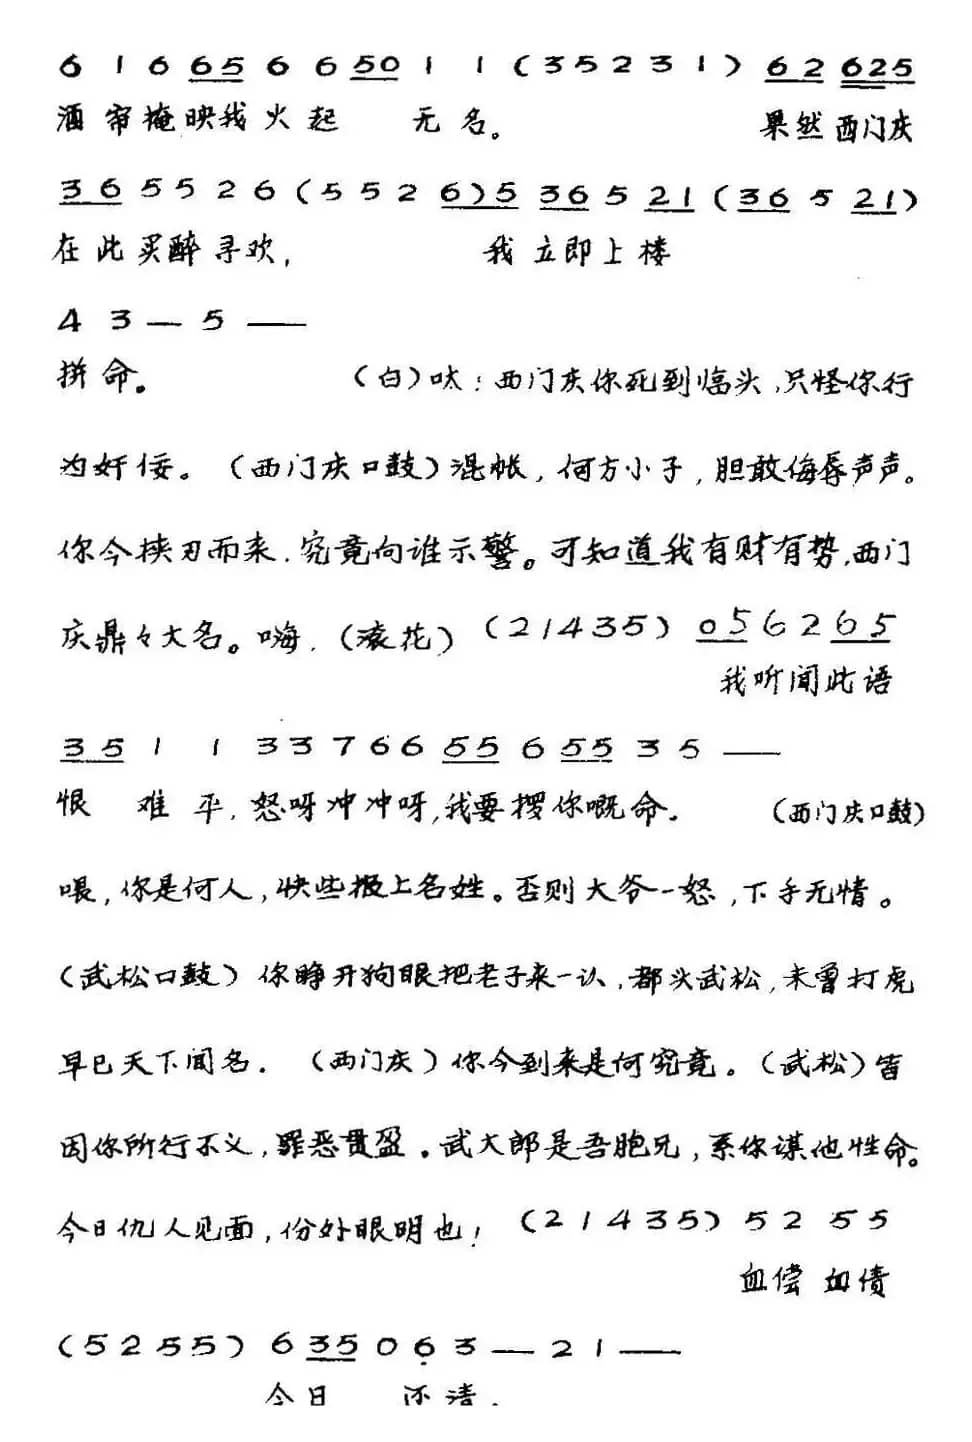 6 1 6 65 6 6 50 1 1 (35231) 62 625
酒帘掩映我火起 无名。 果然西门庆
36 5 5 2 6 (5 5 2 6) 5 36 5 21 (36 5 21)
在此买醉寻欢, 我立即上楼
4 3 — 5 —
拼命。 (白)呔:西门庆你死到临头,只怪你行
为奸佞。(西门庆口鼓)混帐,何方小子,胆敢侮辱声声。
你今挟刃而来.究竟向谁示警。可知道我有财有势,西门
庆鼎々大名。嗨.(滚花) (21435) 05 6 2 65
我听闻此语
35 1 1 3 3 7 6 6 55 6 55 3 5 —
恨 难 平.怒呀冲冲呀,我要攞你嘅命. (西门庆口鼓)
喂,你是何人,快些报上名姓。否则大爷一怒,下手无情。
(武松口鼓)你睁开狗眼把老子来一认,都头武松,未曾打虎
早已天下闻名. (西门庆)你今到来是何究竟。(武松)皆
因你所行不义,罪恶贯盈.武大郎是吾胞兄,系你谋他性命。
今日仇人见面,份外眼明也! (21435) 5 2 5 5
血偿 血债
(5 2 5 5) 6 35 0 6 3 — 2 1 —
今日 还清.